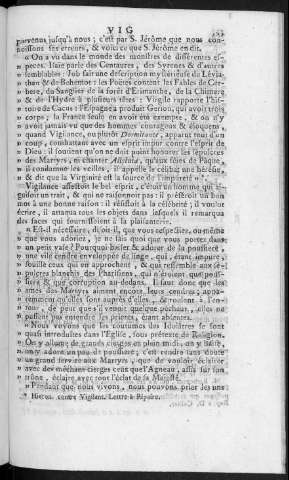 VIG
parvenus jusqu'à nous; c'est par S. Jérôme que nous con-
noissons ses erreurs, & voici ce que S. Jérôme en dit.
« On a vu dans le monde des monstres de différentes es-
peces. Isaïe parle des Centaures, des Syrenes & d'autres
semblables: Job fait une description mystérieuse de Lévia-
than & de Béhemot: les Poëtes content les Fables de Cer-
bere, du Sanglier de la forêt d'Erimanthe, de la Chimere
& de l'Hydre à plusieurs têtes: Virgile rapporte l'His-
toire de Cacus: l'Espagne a produit Gerion, qui avoit trois
corps; la France seule en avoit été exempte, & on n'y
avoit jamais vu que des hommes courageux & éloquens,
quand Vigilance, ou plutôt Dormitance, apparut tout d'un
coup, combattant avec un esprit impur contre l'esprit de
Dieu: il soutient qu'on ne doit point honorer les sépulcres
des Martyrs, ni chanter Alleluia, qu'aux fêtes de Pâque,
il condamne les veilles, il appelle le célibat une hérésie,
& dit que la Virginité est la source de l'impureté *».
Vigilance affectoit le bel esprit, c'étoit un homme qui ai-
guisoit un trait, & qui ne raisonnoit pas: il préféroit un bon
mot à une bonne raison: il visoit à la célébrité; il voulut
écrire, il attaqua tous les objets dans lesquels il remarqua
des faces qui fournissoient à la plaisanterie.
« Est-il nécessaire, disoit-il, que vous respectiez, ou même
que vous adoriez, je ne sais quoi que vous portez dans
un petit vase? Pourquoi baiser & adorer de la poussiere,
une vile cendre enveloppée de linge, qui, étant impure,
souille ceux qui en approchent, & qui ressemble aux sé-
pulcres blanchis des Pharisiens, qui n'étoient que pous-
siere & que corruption au-dedans. Il faut donc que les
ames des Martyrs aiment encore leurs cendres; appa-
remment qu'elles sont auprès d'elles, & roulent à l'en-
tour, de peur que s'il venoit quelque pécheur, elles ne
pussent pas entendre ses prieres, étant absentes.
» Nous voyons que les coutumes des Idolâtres se sont
quasi introduites dans l'Eglise, sous prétexte de Religion.
On y allume de grands cierges en plein midi, on y baise,
on y adore un peu de poudre; c'est rendre sans doute
un grand service aux Martyrs, que de vouloir éclairer
avec des méchans cierges ceux que l'Agneau, assis sur son
trône, éclaire avec tout l'éclat de sa Majesté.
» Pendant que nous vivons, nous pouvons prier les uns
* Hieron. contre Vigilant. Lettre à Ripaire.